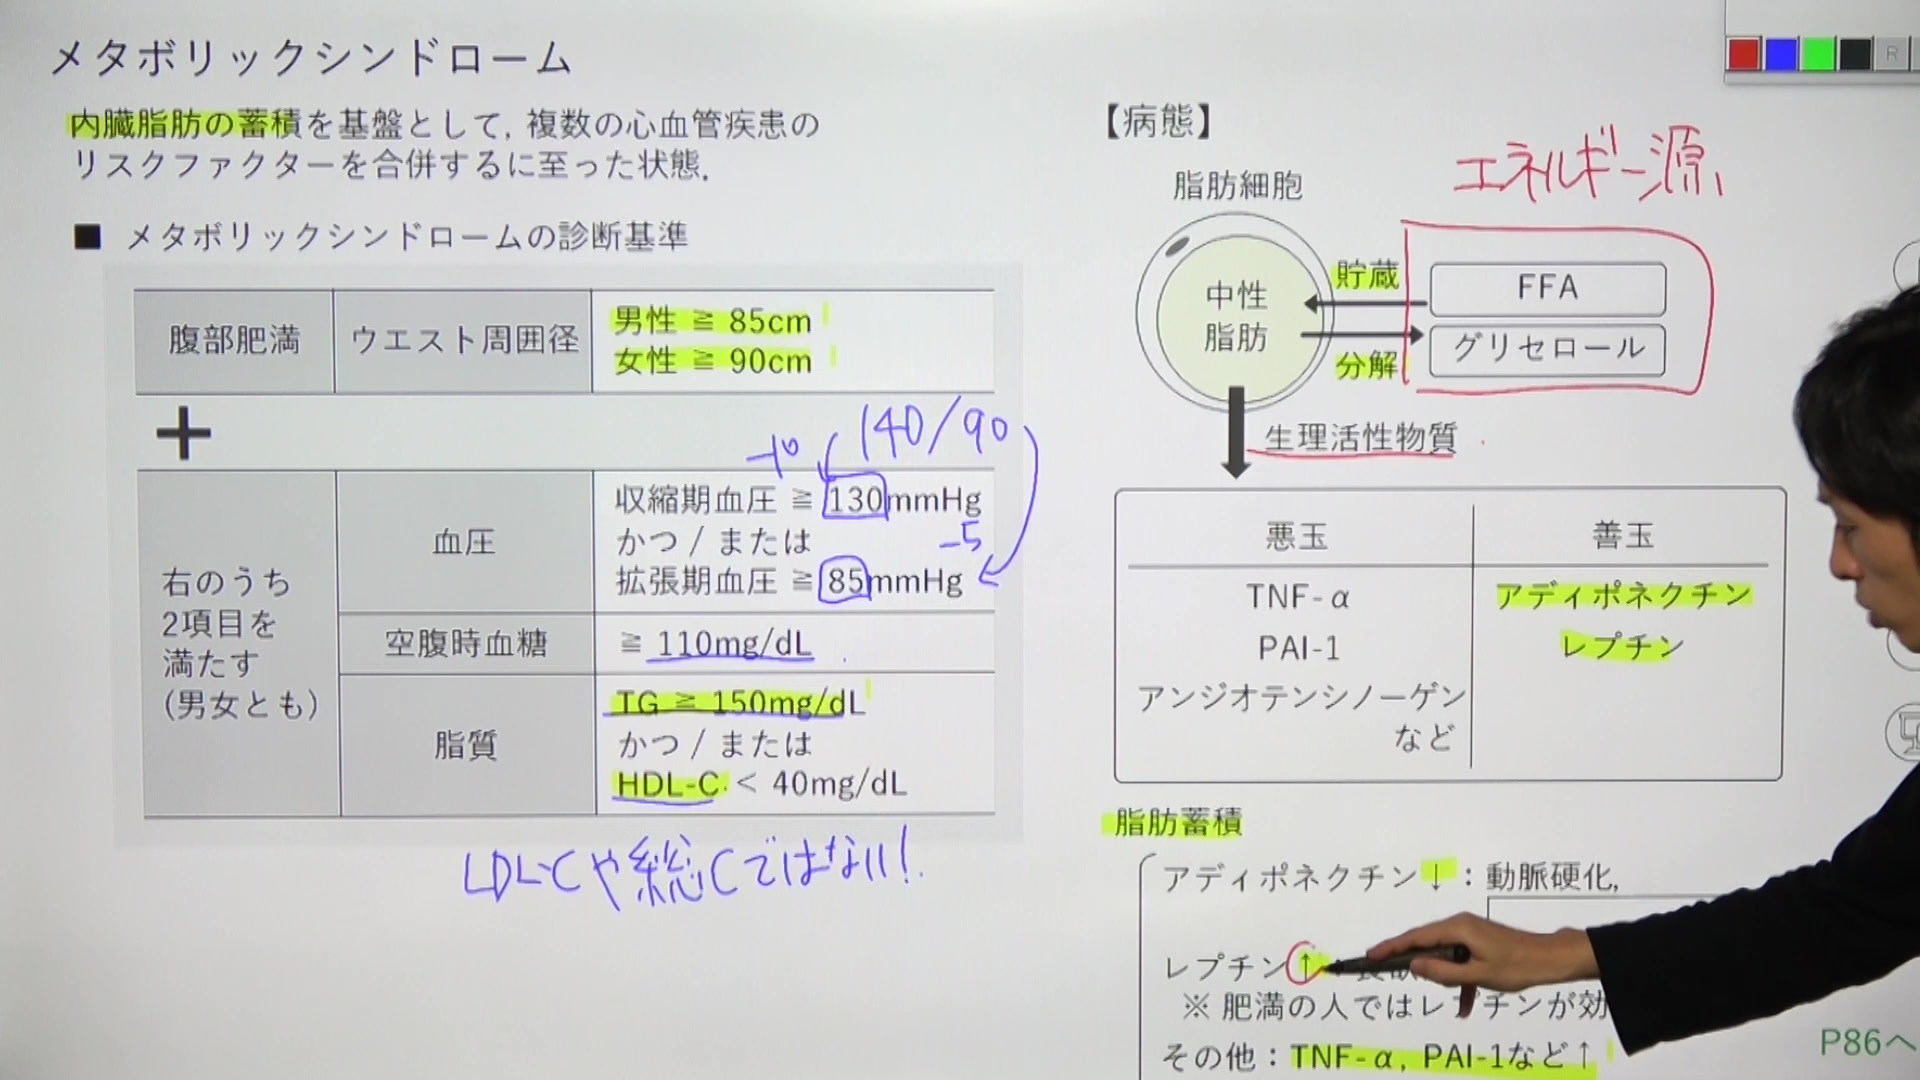 メタボリックシンドローム
内臓脂肪の蓄積を基盤として, 複数の心血管疾患の
リスクファクターを合併するに至った状態.
■ メタボリックシンドロームの診断基準
腹部肥満
ウエスト周囲径
男性 ≧ 85cm
女性 ≧ 90cm
+
-10
140/90
右のうち
2項目を
満たす
(男女とも)
血圧
収縮期血圧 ≧ 130mmHg
かつ / または
-5
拡張期血圧 ≧ 85mmHg
空腹時血糖
≧ 110mg/dL
脂質
TG ≧ 150mg/dL
かつ / または
HDL-C < 40mg/dL
LDL-Cや総Cではない!
【病態】
エネルギー源
脂肪細胞
中性
脂肪
貯蔵
分解
FFA
グリセロール
生理活性物質
悪玉
善玉
TNF-α
アディポネクチン
PAI-1
レプチン
アンジオテンシノーゲン
など
脂肪蓄積
アディポネクチン↓：動脈硬化,
レプチン↑
※ 肥満の人ではレプチンが効
その他：TNF-α, PAI-1など↑
P86へ
R